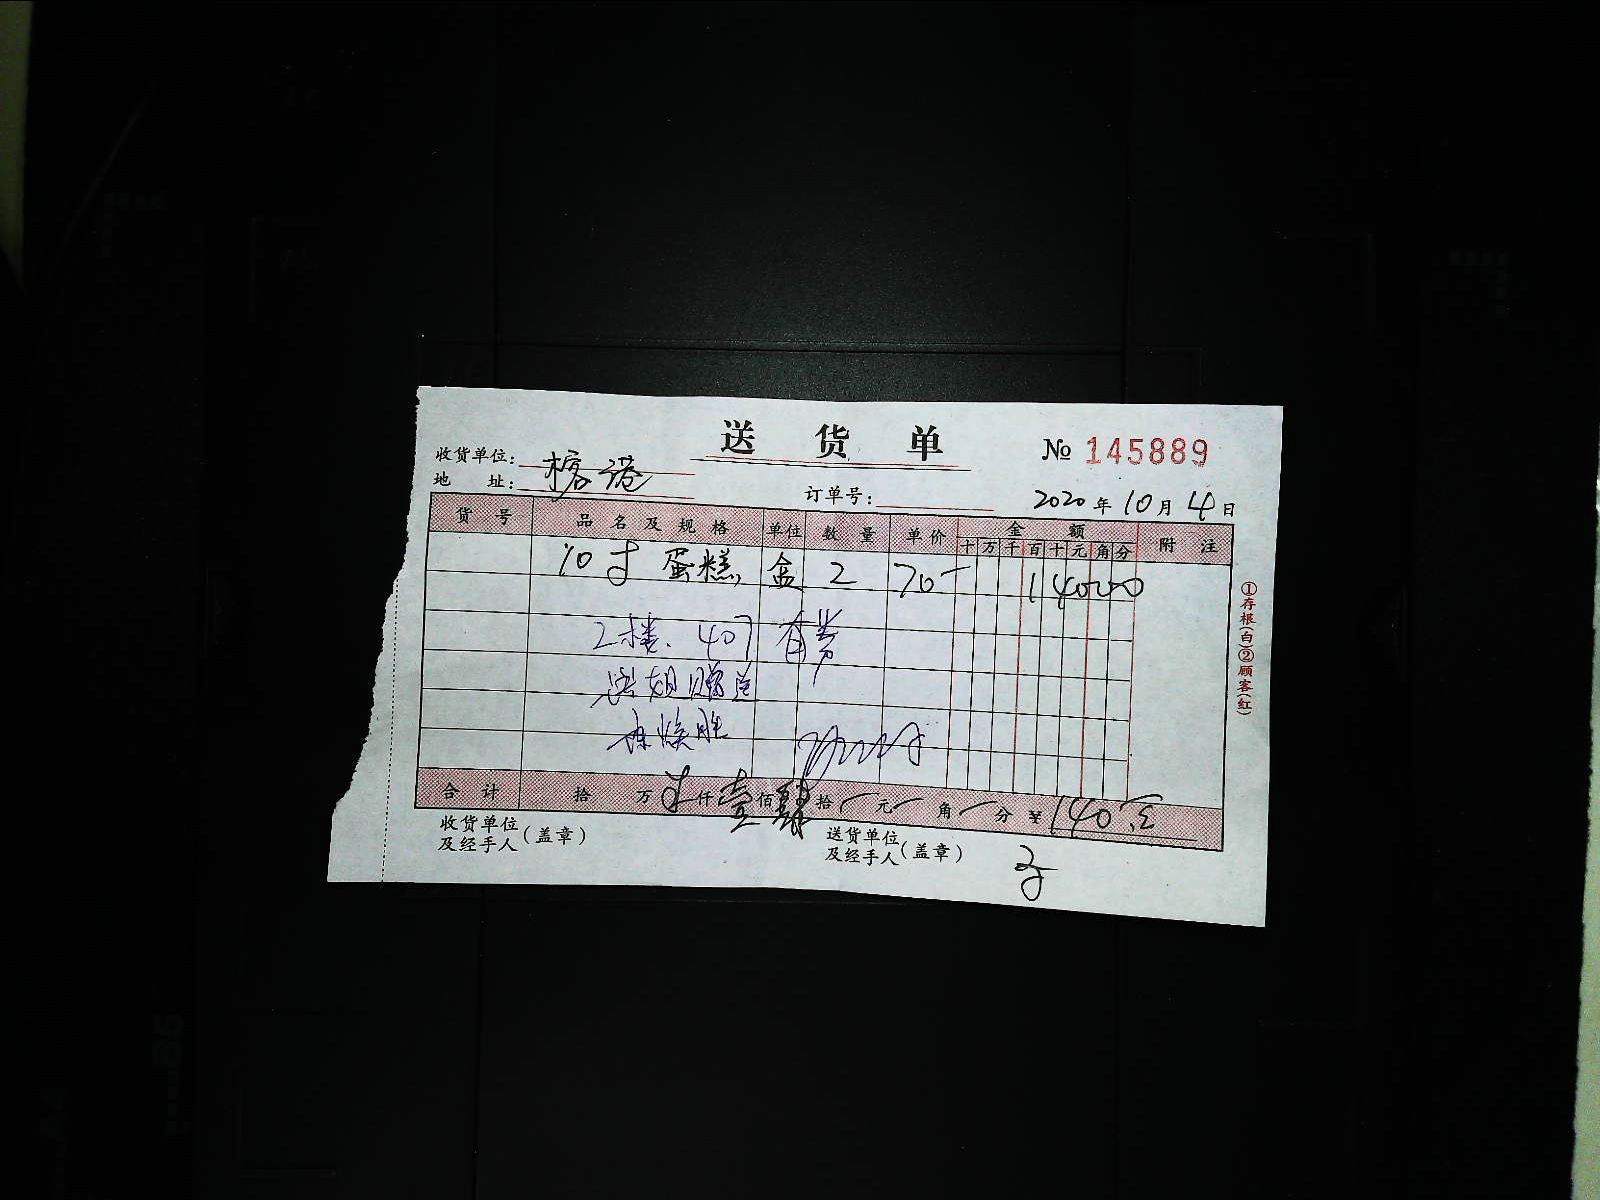 送 货 单
№ 145889
收货单位: 榕港
地 址:
订单号:
2020 年 10 月 4 日
货 号 品 名 及 规 格 单位 数 量 单 价 金 额 附 注
十 万 千 百 十 元 角 分
10寸 蛋糕 盒 2 70- 14000
2楼. 407 有劳
姐 赠送
合 计 拾 万 仟 壹 佰 肆 拾 元 角 分 ¥ 140
收货单位
及经手人 (盖章)
送货单位
及经手人 (盖章)
①存根(白)②顾客(红)